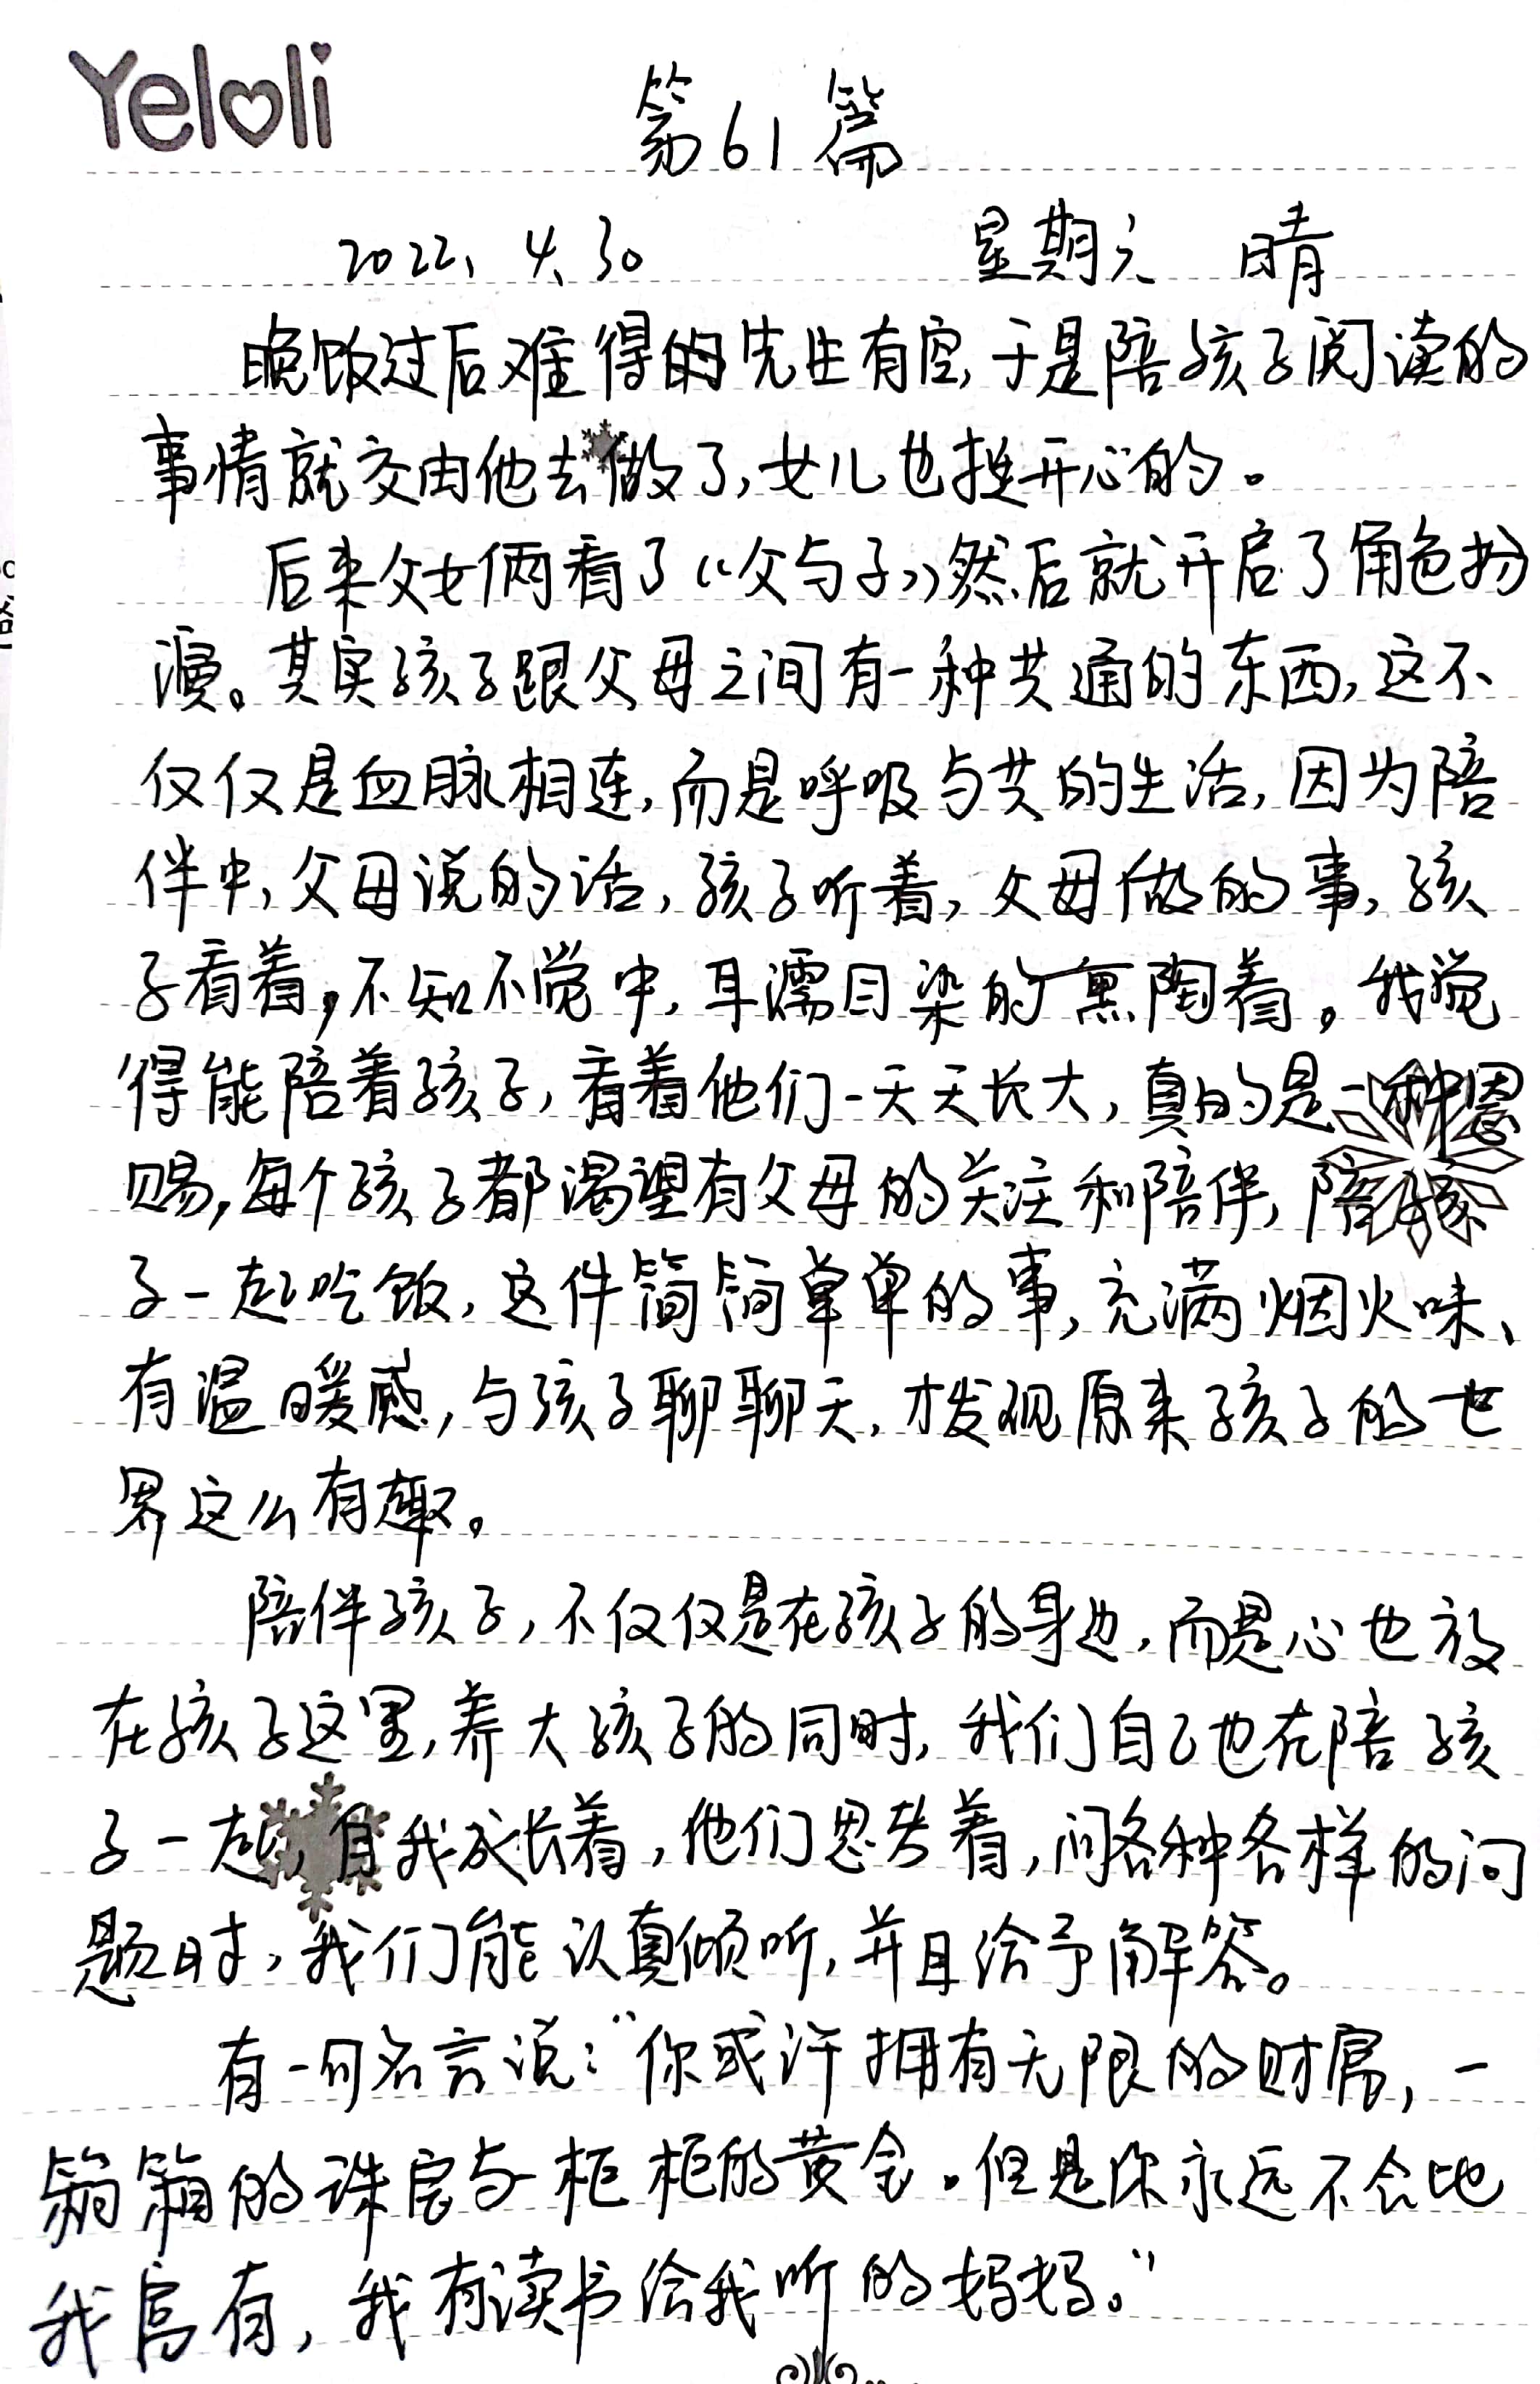 Yeloli
第61篇
2022、4、30 星期六 晴
晚饭过后难得的先生有空,于是陪孩子阅读的
事情就交由他去做了,女儿也挺开心的。
后来父女俩看了《父与子》然后就开启了角色扮
演。其实孩子跟父母之间有一种共通的东西,这不
仅仅是血脉相连,而是呼吸与共的生活,因为陪
伴中,父母说的话,孩子听着,父母做的事,孩
子看着,不知不觉中,耳濡目染的熏陶着。我觉
得能陪着孩子,看着他们一天天长大,真的是一种恩
赐,每个孩子都渴望有父母的关注和陪伴,陪孩
子一起吃饭,这件简简单单的事,充满烟火味、
有温暖感,与孩子聊聊天,才发现原来孩子的世
界这么有趣。
陪伴孩子,不仅仅是在孩子的身边,而是心也放
在孩子这里,养大孩子的同时,我们自己也在陪孩
子一起,自我成长着,他们思考着,问各种各样的问
题时,我们能认真倾听,并且给予解答。
有一句名言说:“你或许拥有无限的财富,一
箱箱的珠宝与一柜柜的黄金。但是你永远不会比
我富有,我有读书给我听的妈妈。”